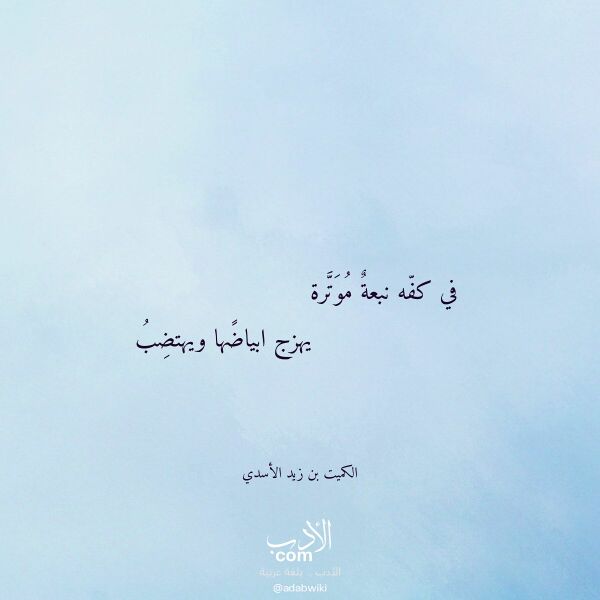 في كفّه نبعةٌ مُوَتَّرة
يهزج ابياضًها ويهتضِبُ
الكميت بن زيد الأسدي
الأدب
com
الأدب .. بلغة عربية
@adabwiki